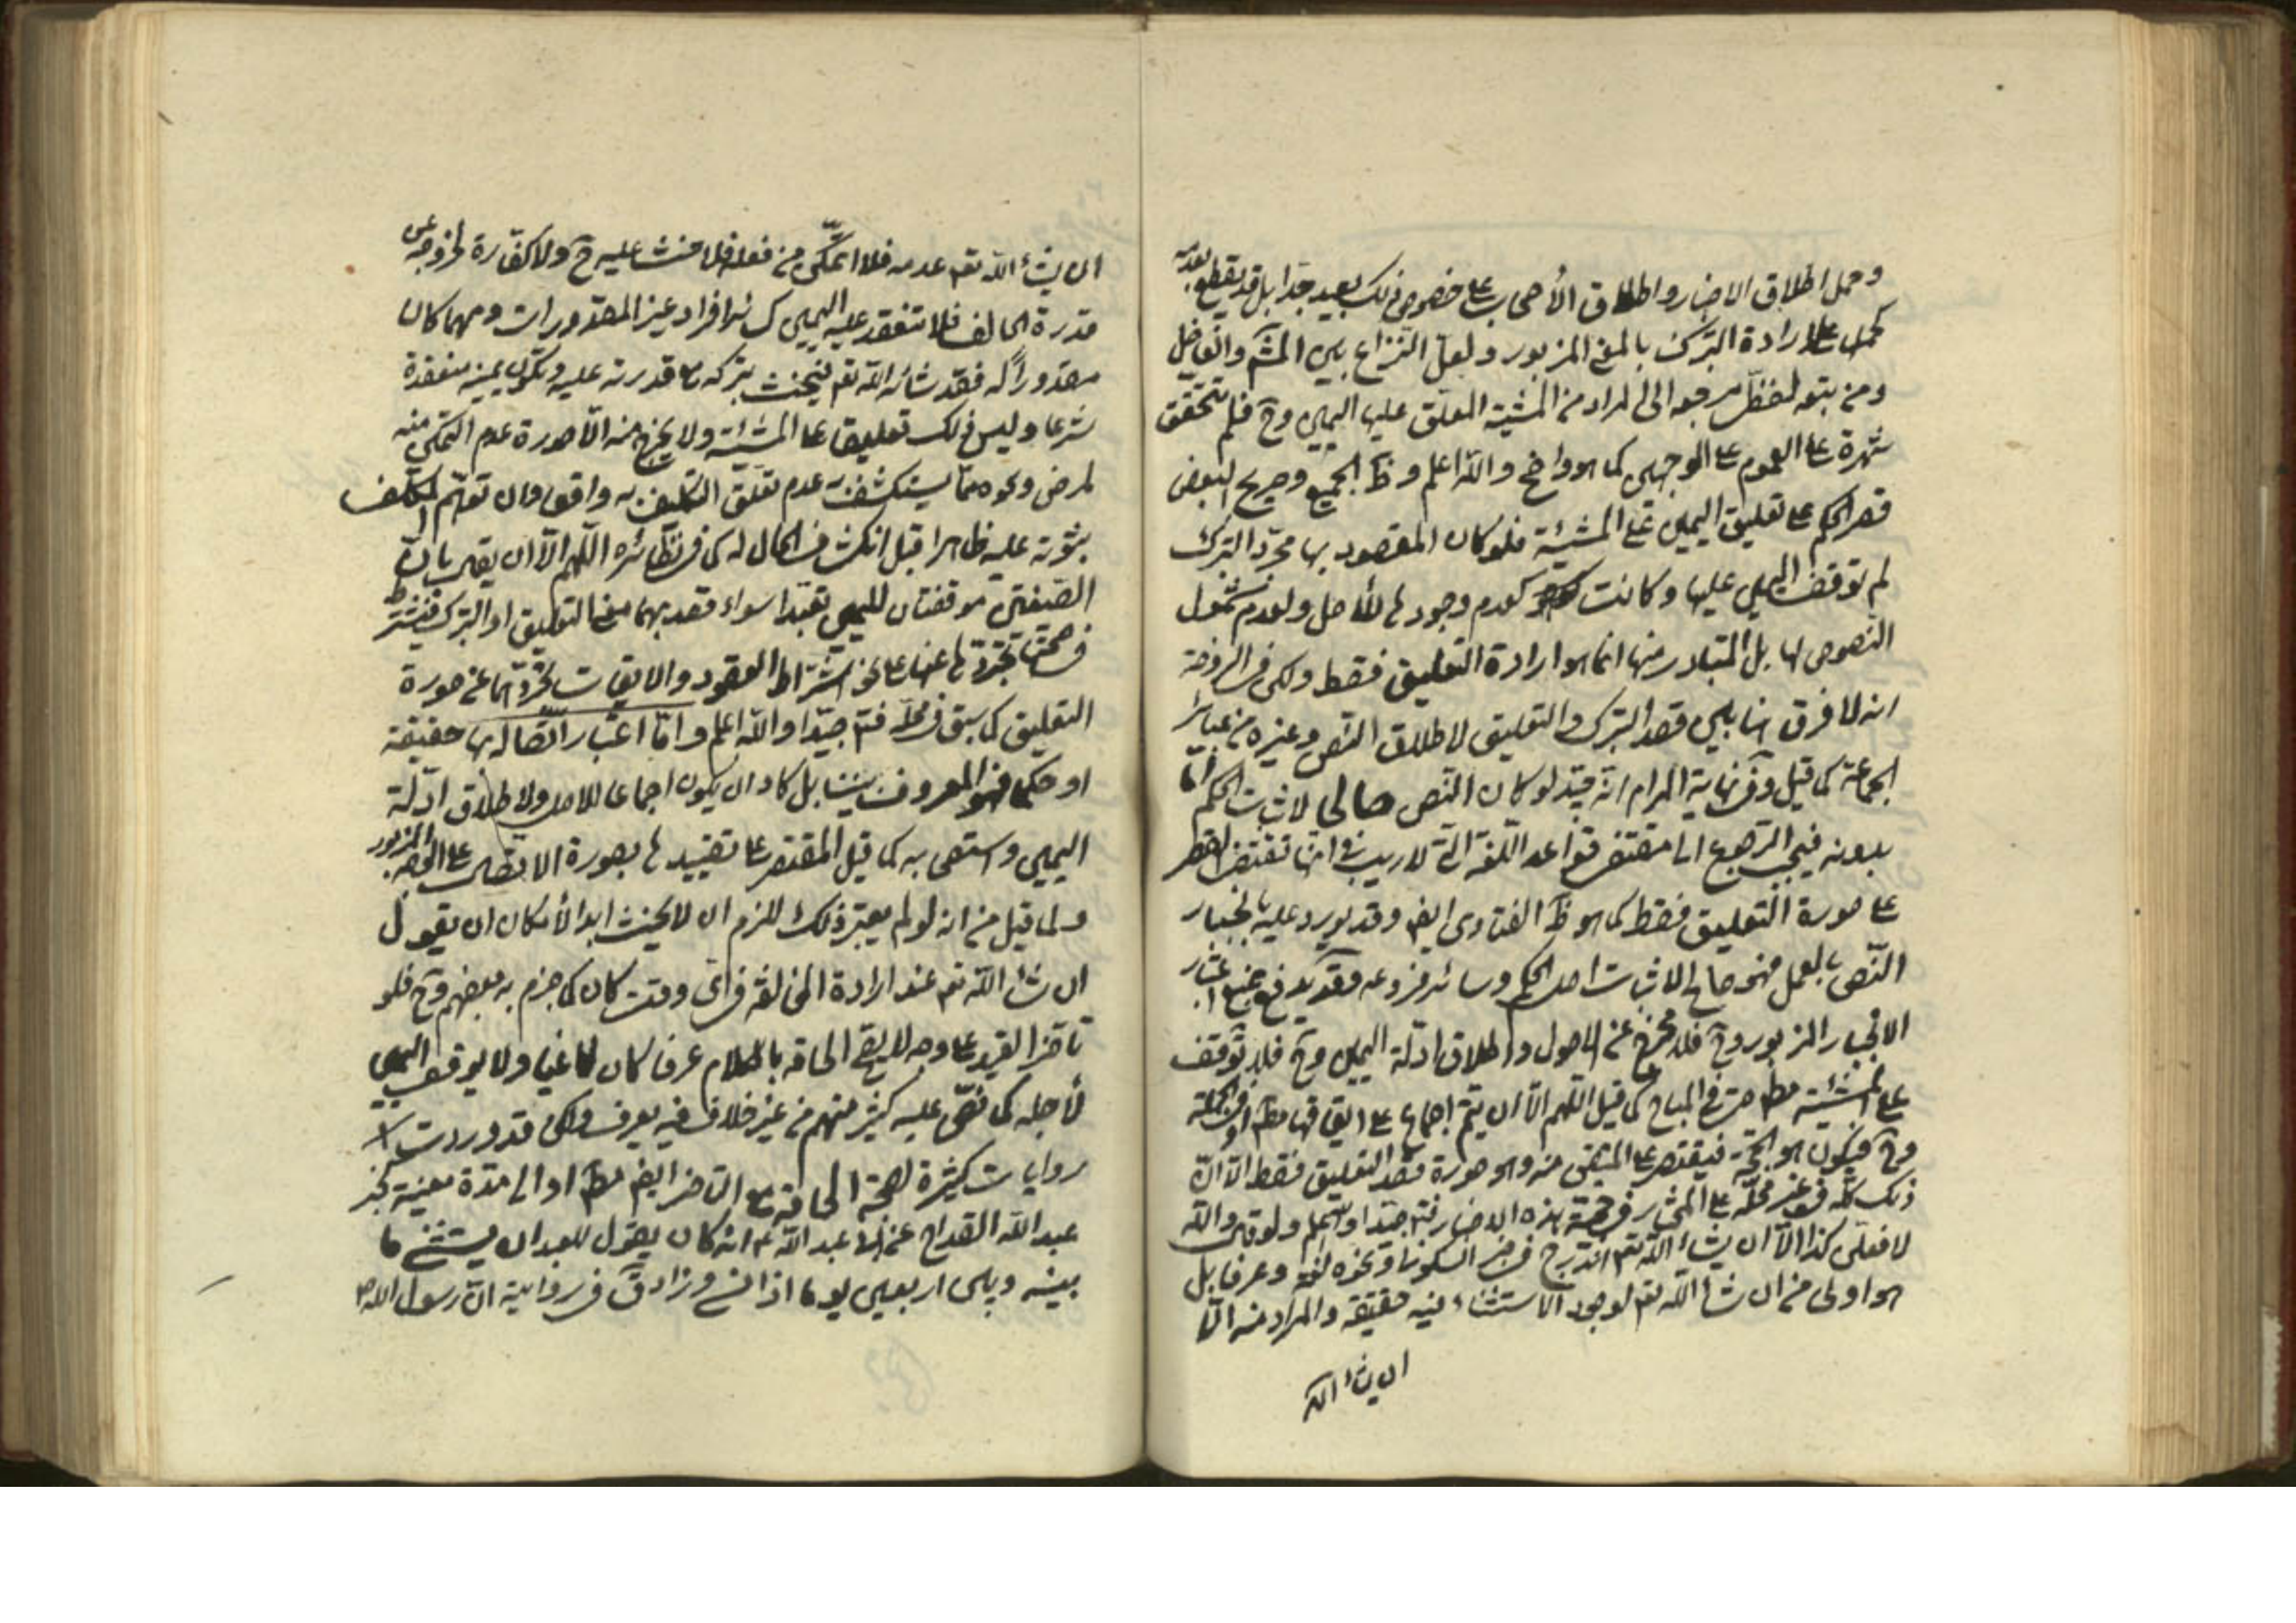 وحمل اطلاق الاخبار واطلاق الأصحاب على خصوص ذلك بعيد جدا بل قد يقطع بعدمه
كحمله على ارادة التبرك بالمعنى المزبور ولعل النزاع بين المشهور والفاضل
ومن تبعه لفظى مرجعه الى المراد من المشية المعلق عليها اليمين وح فلم تتحقق
شهرة على العموم على الوجهين كما هو واضح والله اعلم وظ الجميع وصريح البعض
قصر الحكم على تعليق اليمين على المشية فلو كان المقصود بها مجرد التبرك
لم توقف اليمين عليها وكانت كعدم وجودها للأصل ولعدم شمول
النصوص لها بل المتبادر منها انما هو ارادة التعليق فقط ولكن فى الروضة
انه لا فرق هنا بين قصد التبرك والتعليق لاطلاق النص وغيره من عبائر
الجماعة كما قيل وفى نهاية المرام انه جيد لو كان النص صالحا لاثبات الحكم اما
بدونه فيجب الرجوع الى مقتضى قواعد اللغة التى لا ريب فى انها تقتضى القصر
على صورة التعليق فقط كما هو ظ الفتاوى ايض وقد يورد عليه بانجبار
النص بالعمل فهو صالح لاثبات اصل الحكم وسائر فروعه وقد يدفع بمنع اعتبار
الانجبار المزبور وح فلا مخرج عن الاصول واطلاق ادلة اليمين وح فلا توقف
على المشية مط حتى فى المباح كما قيل اللهم الا ان يتم اجماع على ايقافها مط او فى الجملة
وح فيكون هو الحجة فيقتصر على المتيقن منه وهو صورة قصد التعليق فقط الا ان
ذلك كله فى غير محله على المختار فى حجية هذه الاخبار فتم جيدا واستعمل ولو قال والله
لافعلن كذا الا ان يشاء الله تعم اندرج فى خبر السكونى ونحوه لغة وعرفا بل
هو اولى من ان شاء الله تعم لوجود الاستثناء فيه حقيقة والمراد منه الا
ان يشاء الله
ان يشاء الله تعم عدمه فلا اتمكن من فعله فلا حنث عليه ح ولا كفارة لخروجه عن
قدرة الحالف فلا تنعقد عليه اليمين كسائر افراد غير المقدورات ومهما كان
مقدورا له فقد شاءه الله تعم فيحنث بتركه مع قدرته عليه وتكون يمينه منعقدة
شرعا وليس ذلك تعليقا على المشية ولا يخرج منه الا صورة عدم التمكن منه
لمرض ونحوه مما يستكشف به عدم تعلق التكليف به واقعا وان توهم المكلف
ثبوته عليه ظاهرا قبل انكشاف الحال له كما فى نظائره اللهم الا ان يقال بان
الصيغتين موقفتان لليمين تعبدا سواء قصد بهما معنى التعليق او التبرك فيشترط
فى صحتها تجردها عنها على نحو اشتراط العقود والايقاعات بتجردهما عن صورة
التعليق كما سبق فى محله فتم جيدا والله اعلم واما اعتبار اتصاله بها حقيقة
او حكما فهو المعروف بيننا بل كاد ان يكون اجماعا للاصل ولاطلاق ادلة
اليمين واستصحابه كما قيل المقتصر على تقييدها بصورة الاتصال على الوجه المزبور
ولما قيل من انه لو لم يعتبر ذلك للزم ان لا يحنث ابدا لأمكان ان يقول
ان شاء الله تعم عند ارادة المخالفة فى اى وقت كان كما جزم به بعضهم وح فلو
تاخر القيد على وجه لا يصح الحاقه بالكلام عرفا كان لاغيا ولا يوقف اليمين
لأجله كما نص عليه كثير منهم من غير خلاف فيه يعرف ولكن قد وردت
روايات كثيرة لصحة الحاقه مع التاخر ايض مط او الى مدة معينة كخبر
عبد الله القداح عن ابى عبد الله ع انه كان يقول للعبد ان يستثنى ما
بينه وبين اربعين يوما اذا نسى وزاد فى رواية ان رسول الله ص